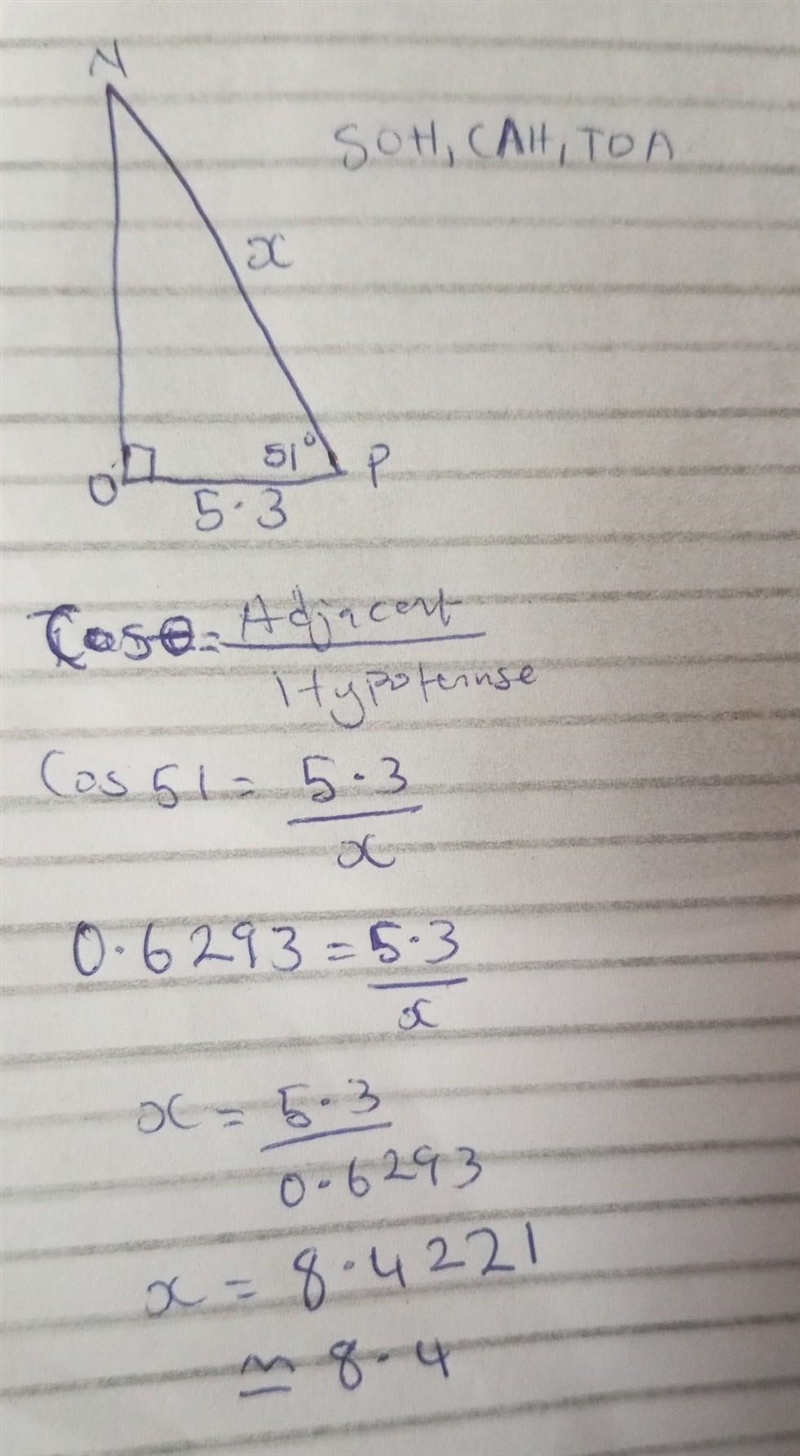 N
SOH, CAH, TOA
x
51° P
O
5.3
Cosθ = Adjacent
Hypotenuse
Cos 51 = 5.3
x
0.6293 = 5.3
x
x = 5.3
0.6293
x = 8.4221
≃ 8.4